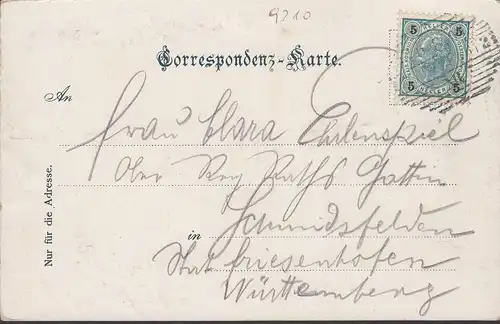 9310
5 HELLER 5
5 HELLER 5
Correspondenz-Karte.
An
Frau Clara
Ober Reg Raths Gattin
in Schmidsfelden
friesenhofen
Württemberg
Nur für die Adresse.